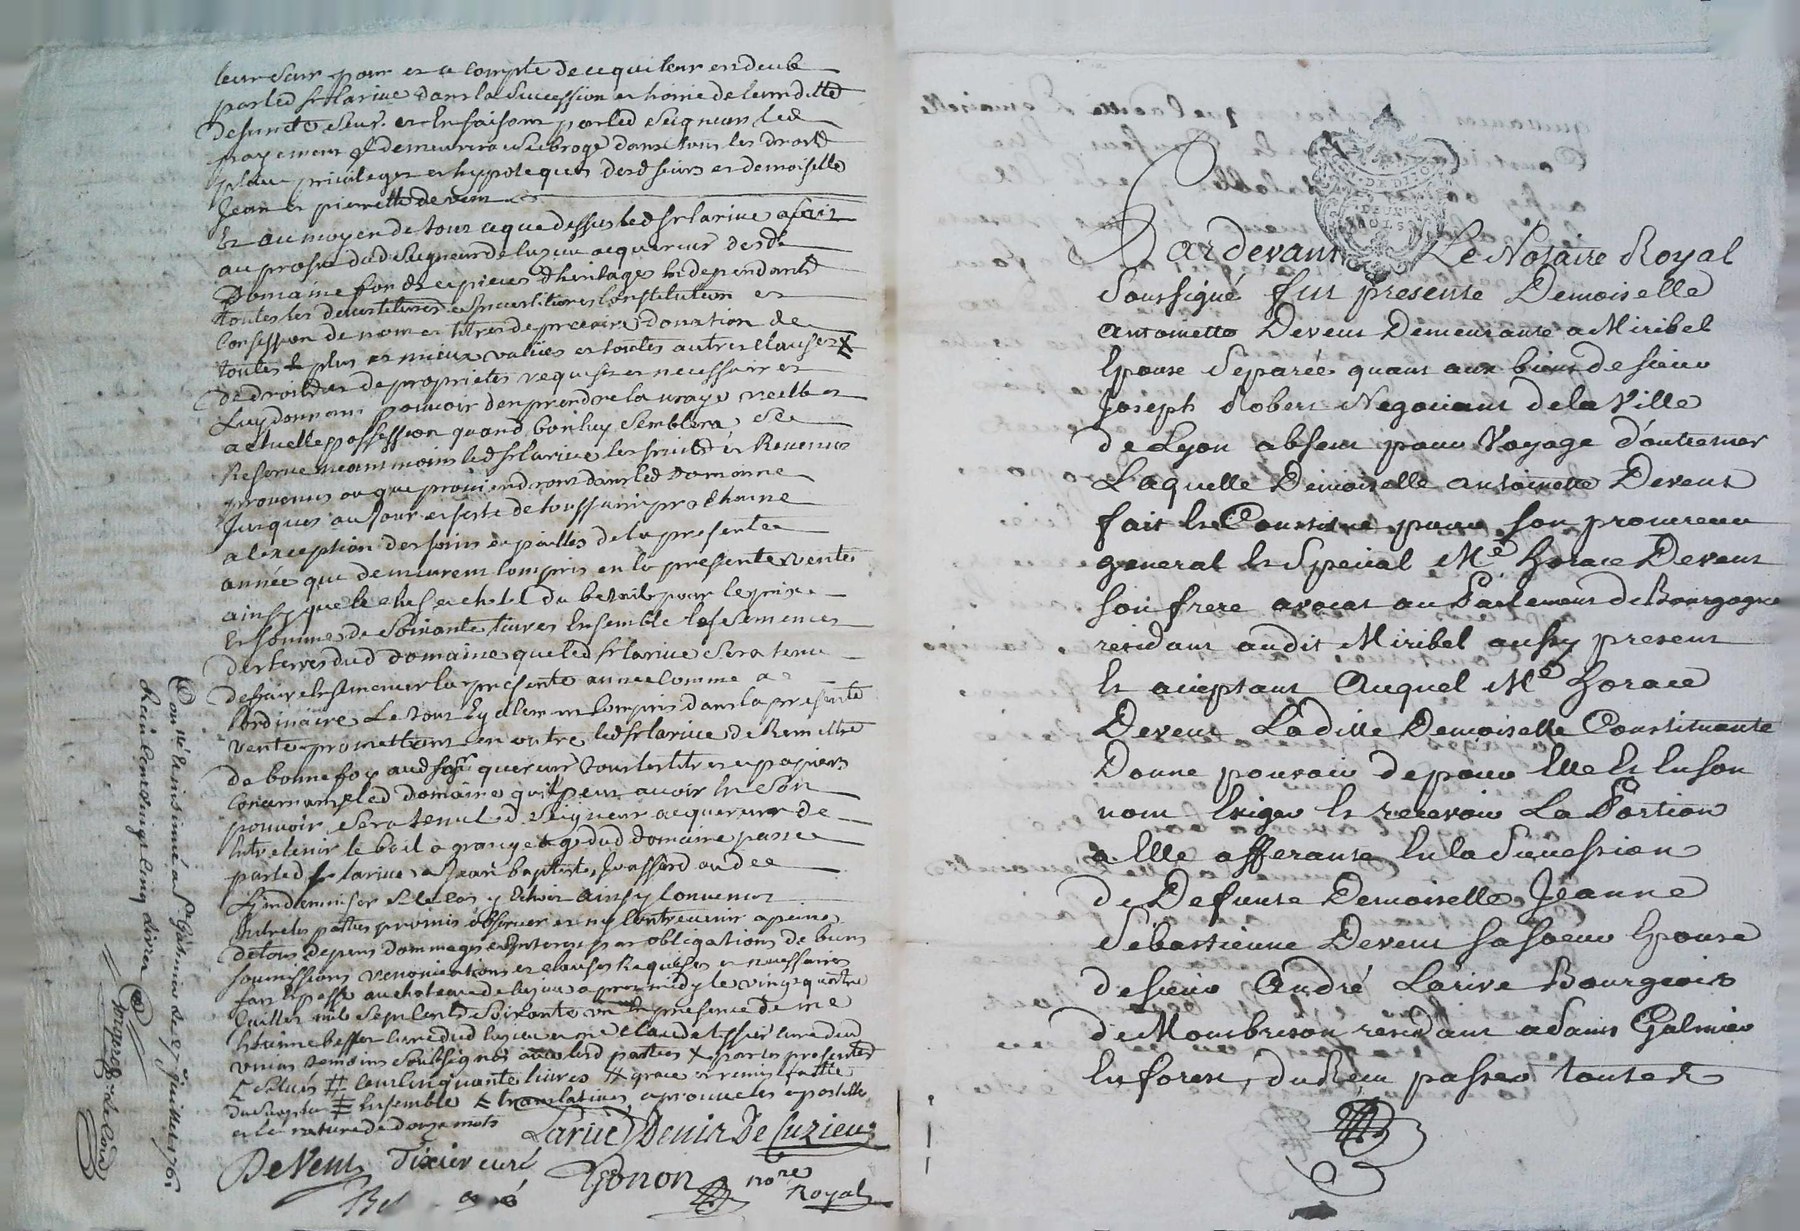 leur sœur pour et a compte de ce qui leur est deub
par led sr larive dans la succession et hoirie de leurditte
defunte sœur et en faisant par led seigneur led
payement il demeurera subrogé dans tous les droits
place privileges et hypoteques desd sieurs et demoiselle
Jean et pierrette devent
Et au moyen de tout ce que dessus led sr larive a fait
au profit dud seigneur de luzieu acquereur desd
Domaine fonds et pieces d'heritages en dependants
toutes les devestitures investitures Constitution et
Confession de nom et titres de precaire donation de
toutes plus et mieux values et toutes autres clauses X
de droit de proprietes requises et necessaires
Luy donnant pouvoir d'en prendre la vraye reelle et
actuelle possession quand bon luy semblera, se
Reserve neantmoins led sr larive les fruits et Revenus
provenus ou que proviendront dans led domaine
Jusques au Jour et feste de toussaint prochaine
a l'exception des foins et pailles de la presente
année que demeurent compris en la presente vente
ainsy que le chef et chetel du betail pour le prix
et somme de soixante livres Ensemble les semences
des terres dud domaine que led sr larive sera tenu
de faire ensemencer la presente année comme a
l'ordinaire Le tout Egalement Compris dans la presente
vente promettant en outre led sr larive de Remettre
de bonne foy aud sgr acquereur tous les titres et papiers
concernant led domaine qu'il peut avoir en son
pouvoir, sera tenu led Seigneur acquereur de
Entretenir le bail a grangeage dud domaine passé
par led sr larive a Jean baptiste ou de
l'indemniser si le cas y Echoit ainsy Convenu
Entre les parties promis observer et ny contrevenir a peine
de tous depens dommages et interests par obligations de biens
soumissions renonciations et clauses Requises et necessaires
fait et passé au chateau de luzieu apres midy le vingt quatre
Juillet mil sept Cent soixante un en presence de me
Etienne besson curé dud luzieu et me claude tissier curé dud
unias temoins soussignés avec lesd parties X par les presentes
# Cent cinquante livres # grace et remis faitte
# Ensemble X translatives, aprouvés les apostilles
et la rature de douze mots
Larive Denis De Cuzieu
DeVent Tixier curé Gonon nore Royal

Con né et insinué a St Galmier le 27 Juillet 1761
Recu Cent vingt Cinq livres

Pardevant Le Notaire Royal
Soussigné fut presente Demoiselle
Antoinette Devent Demeurante a Miribel
Epouse Separée quant aux biens de sieur
Joseph Robert Negociant de la Ville
de Lyon absent pour Voyage d'outremer
Laquelle Demoiselle Antoinette Devent
fait et Constitué pour son procureur
general et Special Me Horace Devent
son frere avocat au Parlement de Bourgogne
residant audit Miribel aussy present
et acceptant Auquel Me Horace
Devent Laditte Demoiselle Constituante
Donne pouvoir de pour Elle et En son
nom Exiger et recevoir La Portion
a Elle afferante En la Succession
de Defunte Demoiselle Jeanne
Sebastienne Devent sa sœur Epouse
de sieur André Larive Bourgeois
de Montbrison residant a Saint Galmier
En forest, du Reçu passer toutes